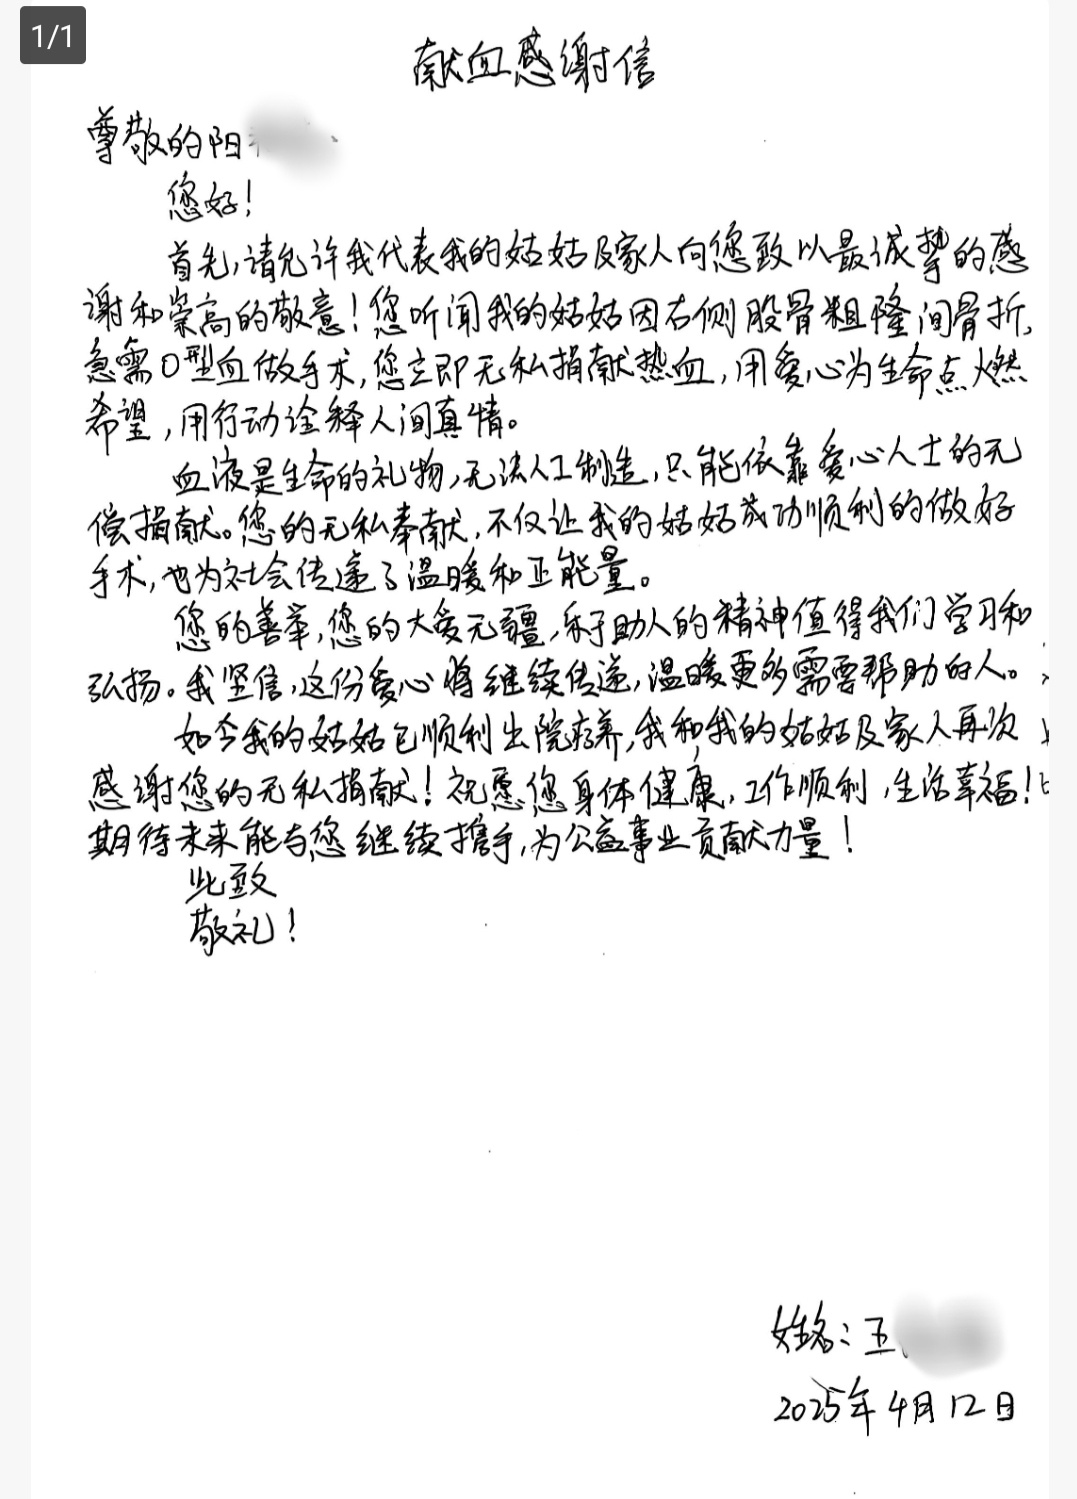 1/1
献血感谢信
尊敬的阳
您好！
首先,请允许我代表我的姑姑及家人向您致以最诚挚的感
谢和崇高的敬意！您听闻我的姑姑因右侧股骨粗隆间骨折,
急需O型血做手术,您立即无私捐献热血,用爱心为生命点燃
希望,用行动诠释人间真情。
血液是生命的礼物,无法人工制造,只能依靠爱心人士的无
偿捐献。您的无私奉献,不仅让我的姑姑成功顺利的做好
手术,也为社会传递了温暖和正能量。
您的善举,您的大爱无疆,乐于助人的精神值得我们学习和
弘扬。我坚信,这份爱心将继续传递,温暖更多需要帮助的人。
如今我的姑姑已顺利出院疗养,我和我的姑姑及家人再次
感谢您的无私捐献！祝愿您身体健康,工作顺利,生活幸福！
期待未来能与您继续携手,为公益事业贡献力量！
此致
敬礼！
姓名：王
2025年4月12日